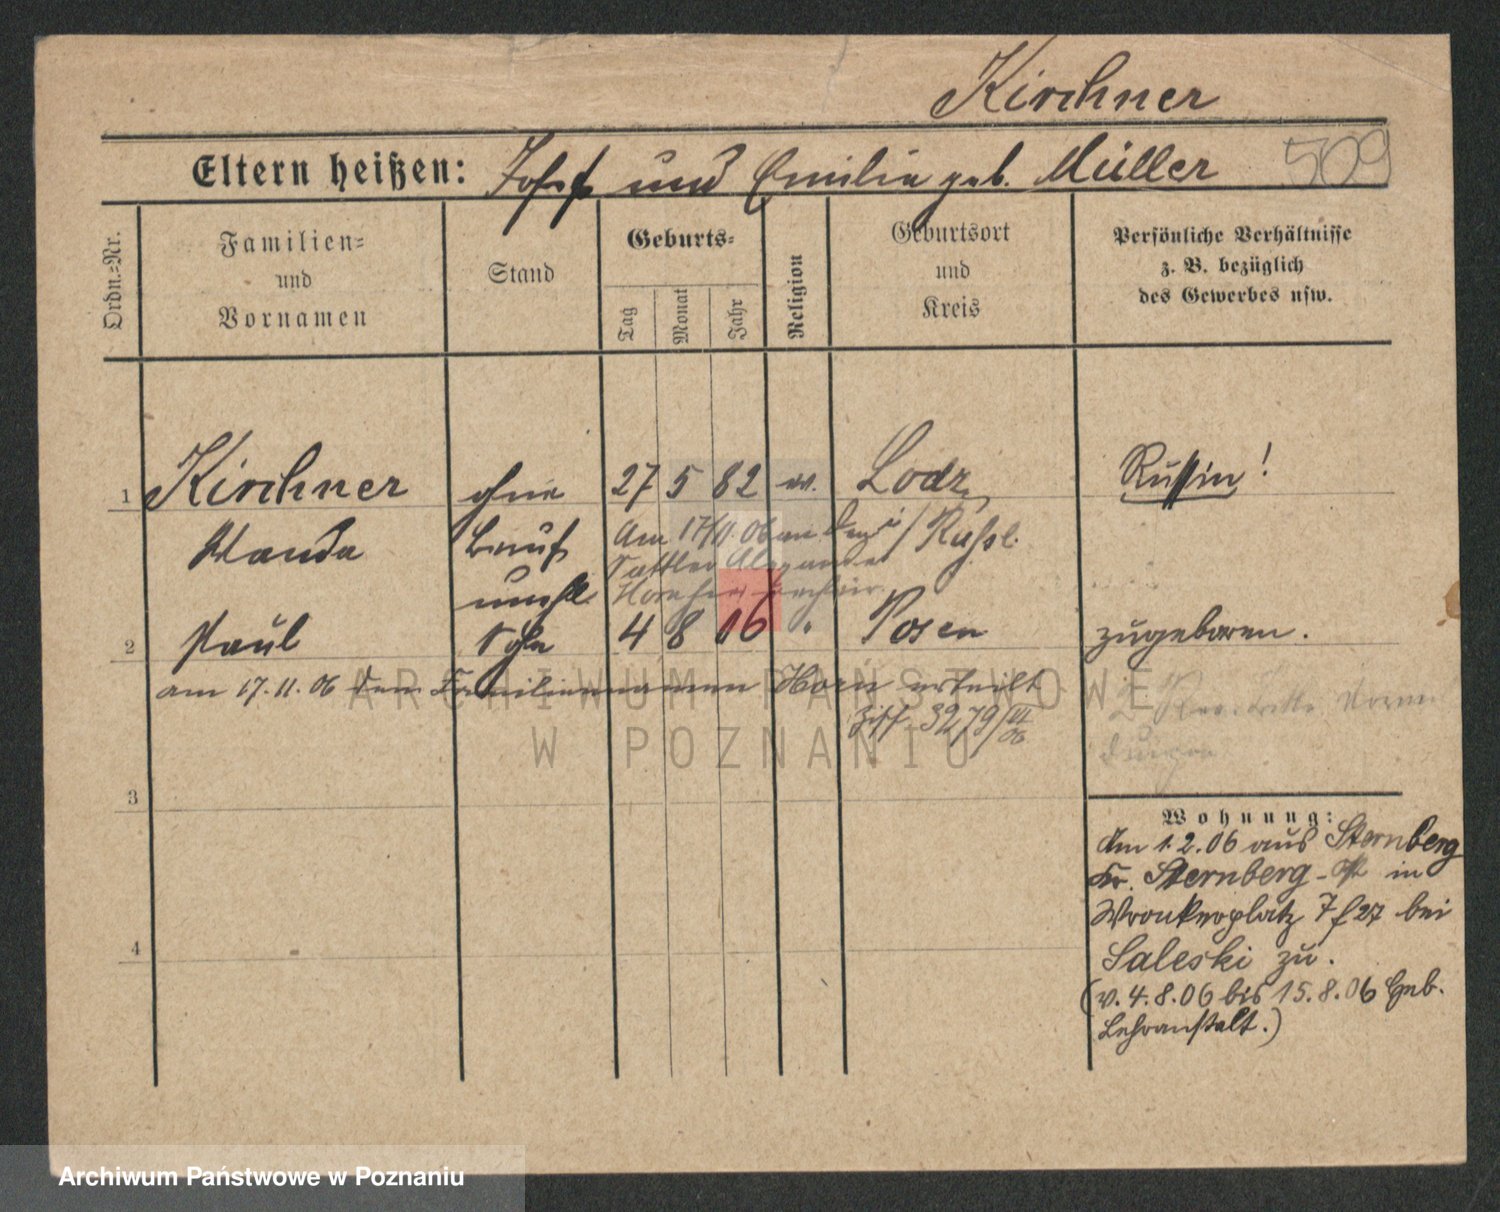 Kirchner
Eltern heißen: Josef und Emilia geb. Müller 509
Ordn.=Nr.
Familien=
und
Vornamen
Stand
Geburts=
Tag
Monat
Jahr
Religion
Geburtsort
und
Kreis
Persönliche Verhältnisse
z. B. bezüglich
des Gewerbes usw.
1 Kirchner ohne 27 5 82 ev. Lodz Russin!
Wanda Beruf Am 17/11. 06 an den / Russl.
unehl. Sattler Alexander
Horn
2 Paul Sohn 4 8 06 " Posen zugeboren.
am 17. 11. 06 dem Familiennamen Horn erteilt
3279/VI 06
3
4
Wohnung:
Am 1. 2. 06 aus Sternberg
Kr. Sternberg in
Wronkerplatz 7 f 27 bei
Saleski zu.
(v. 4. 8. 06 bis 15. 8. 06 Geb.
Lehranstalt.)
ARCHIWUM PAŃSTWOWE
W POZNANIU
Archiwum Państwowe w Poznaniu